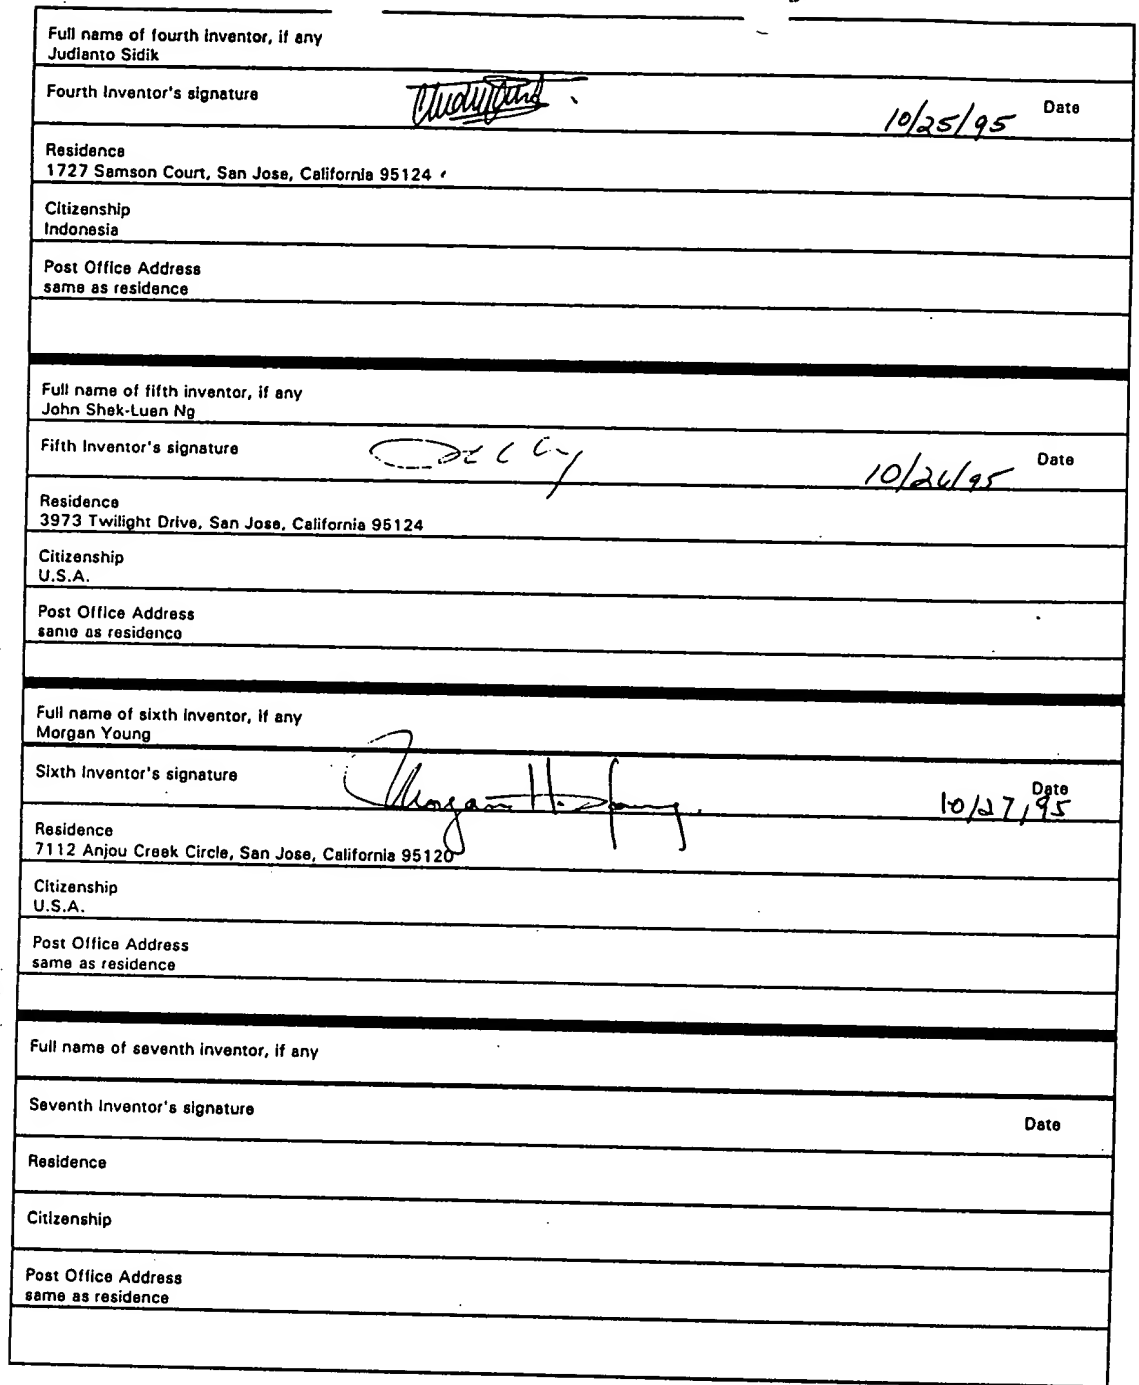 Full name of fourth inventor, if any
Judianto Sidik
Fourth Inventor's signature
10/25/95 Date
Residence
1727 Samson Court, San Jose, California 95124
Citizenship
Indonesia
Post Office Address
same as residence
Full name of fifth inventor, if any
John Shek-Luen Ng
Fifth Inventor's signature
10/26/95 Date
Residence
3973 Twilight Drive, San Jose, California 95124
Citizenship
U.S.A.
Post Office Address
same as residence
Full name of sixth inventor, if any
Morgan Young
Sixth Inventor's signature Morgan H. Young
10/27/95 Date
Residence
7112 Anjou Creek Circle, San Jose, California 95120
Citizenship
U.S.A.
Post Office Address
same as residence
Full name of seventh inventor, if any
Seventh Inventor's signature
Date
Residence
Citizenship
Post Office Address
same as residence